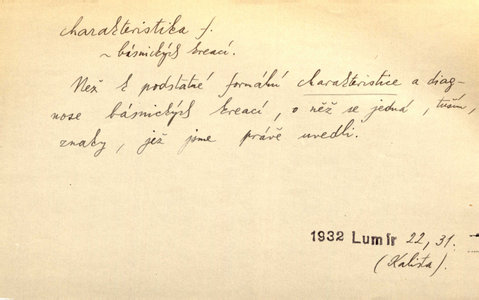 charakteristika f.
~ básnických kreací.
Než k podstatné formální charakteristice a diag-
nose básnických kreací, o něž se jedná, tuším,
znaky, jež jsme právě uvedli.
1932 Lumír 22, 31.
(Kalista).